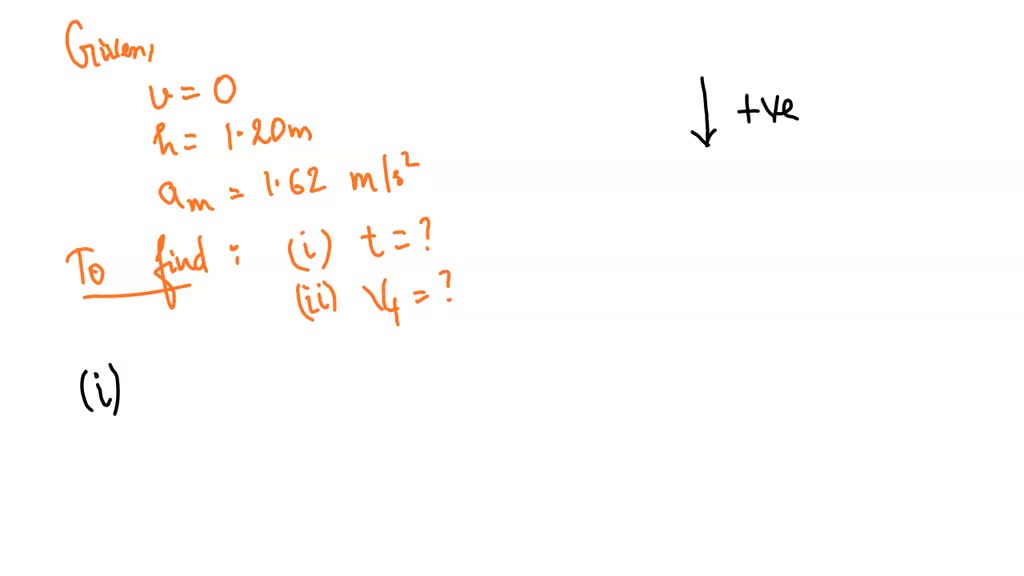 Given,
u = 0
h = 1.20m
am = 1.62 m/s²
To find : (i) t = ?
(ii) Vf = ?
↓ +ve
(i)